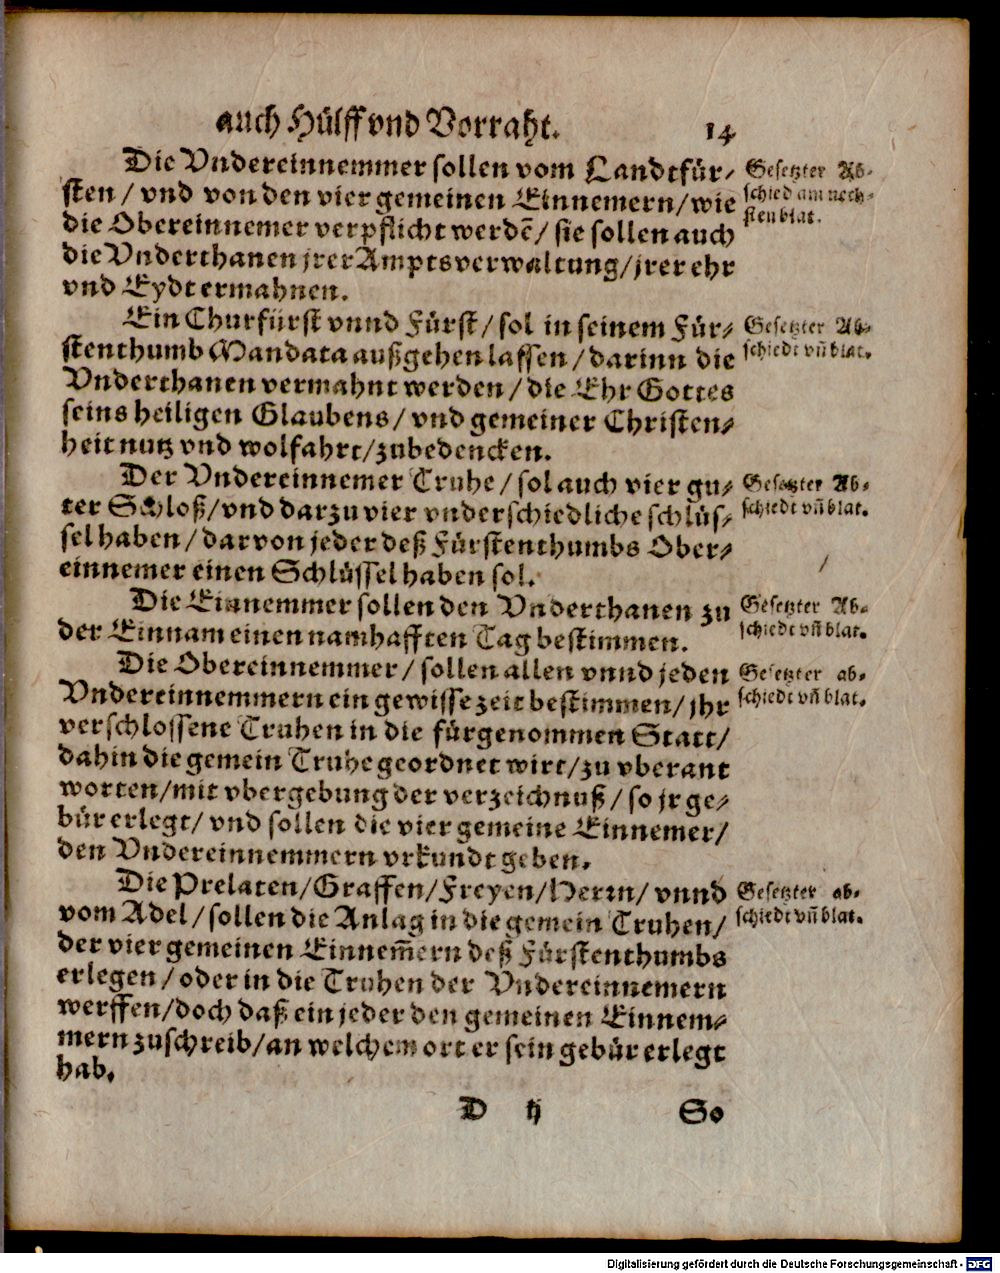 auch Hülff vnd Vorraht. 14
Die Vndereinnemmer sollen vom Landtfür⸗
sten / vnd von den vier gemeinen Einnemern / wie
die Obereinnemer verpflicht werdē / sie sollen auch
die Vnderthanen jrer Amptsverwaltung / jrer ehr
vnd Eydt ermahnen.
Gesetzter Ab⸗
schied am nech⸗
sten blat.
Ein Churfürst vnnd Fürst / sol in seinem Für⸗
stenthumb Mandata außgehen lassen / darinn die
Vnderthanen vermahnt werden / die Ehr Gottes
seins heiligen Glaubens / vnd gemeiner Christen⸗
heit nutz vnd wolfahrt / zubedencken.
Gesetzter Ab⸗
schiedt vn̄ blat.
Der Vndereinnemer Truhe / sol auch vier gu⸗
ter Schloß / vnd darzu vier vnderschiedliche schlüs⸗
sel haben / darvon jeder deß Fürstenthumbs Ober⸗
einnemer einen Schlüssel haben sol.
Gesetzter Ab⸗
schiedt vn̄ blat.
Die Einnemmer sollen den Vnderthanen zu
der Einnam einen namhafften Tag bestimmen.
Gesetzter Ab⸗
schiedt vn̄ blat.
Die Obereinnemmer / sollen allen vnnd jeden
Vndereinnemmern ein gewisse zeit bestimmen / jhr
verschlossene Truhen in die fürgenommen Statt /
dahin die gemein Truhe geordnet wirt / zu vberant
worten / mit vbergebung der verzeichnuß / so jr ge⸗
bür erlegt / vnd sollen die vier gemeine Einnemer /
den Vndereinnemmern vrkundt geben.
Gesetzter ab⸗
schiedt vn̄ blat.
Die Prelaten / Graffen / Freyen / Herrn / vnnd
vom Adel / sollen die Anlag in die gemein Truhen /
der vier gemeinen Einnem̄ern deß Fürstenthumbs
erlegen / oder in die Truhen der Vndereinnemern
werffen / doch daß ein jeder den gemeinen Einnem⸗
mern zuschreib / an welchem ort er sein gebür erlegt
hab.
Gesetzter ab⸗
schiedt vn̄ blat.
D ij So
Digitalisierung gefördert durch die Deutsche Forschungsgemeinschaft - DFG